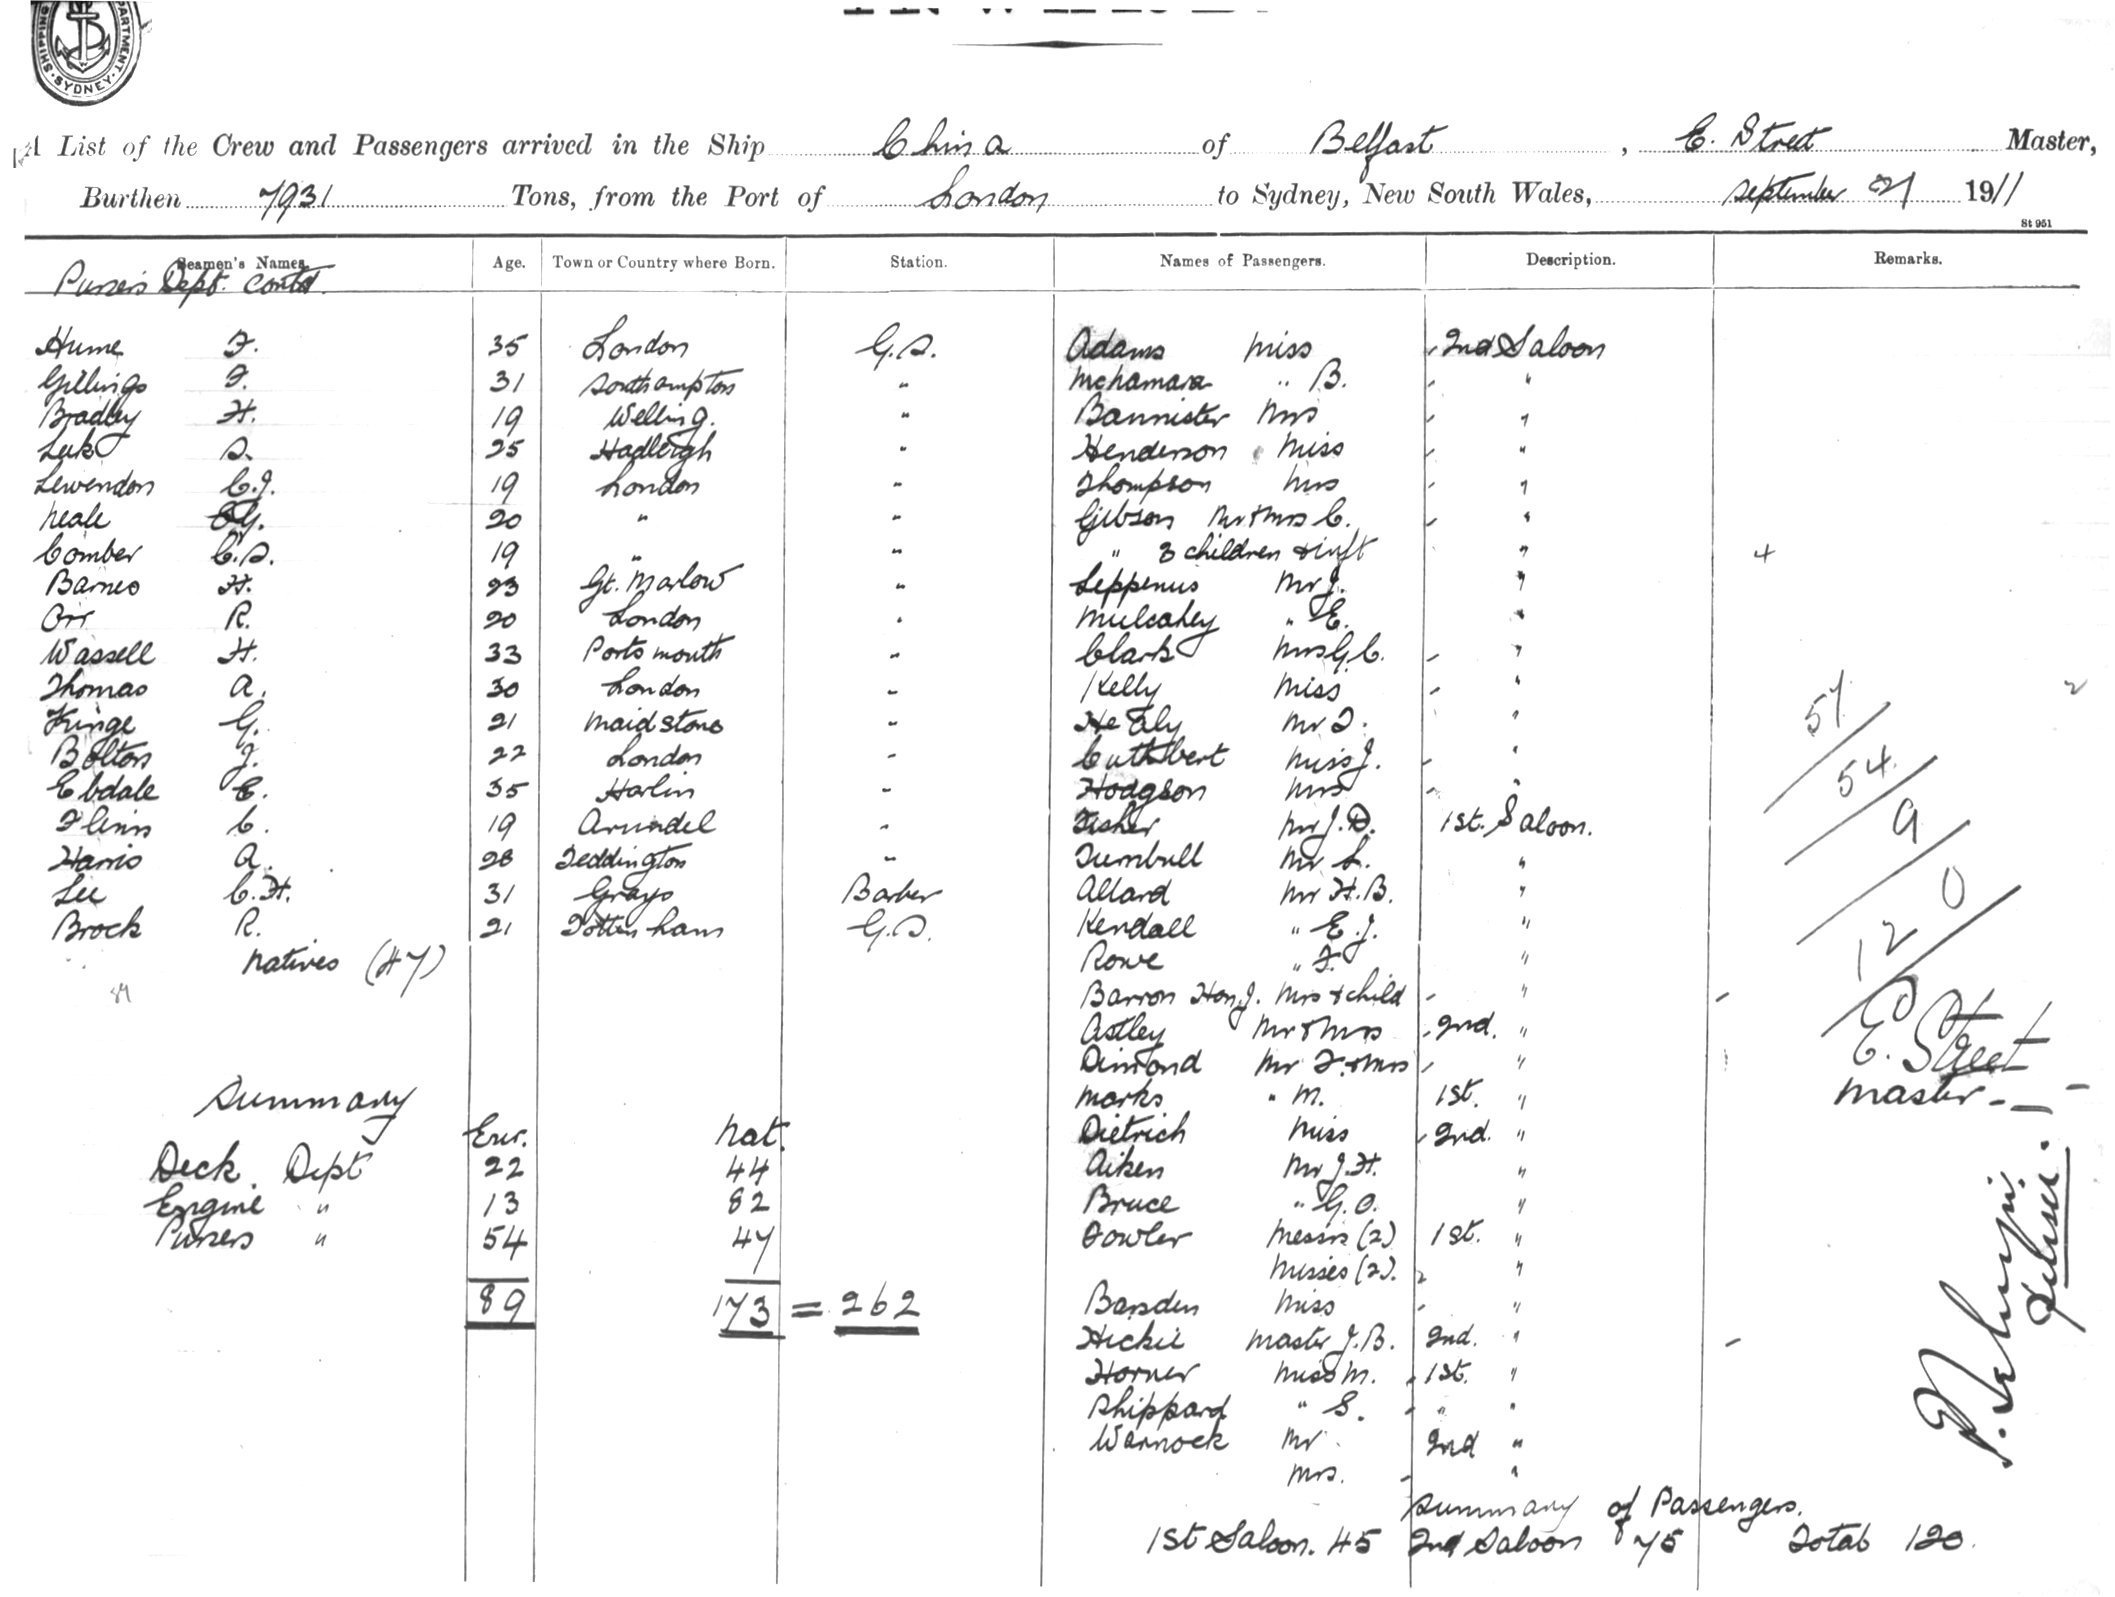 SHIPPING DEPARTMENT SYDNEY
A List of the Crew and Passengers arrived in the Ship China of Belfast, E. Street Master,
Burthen 7931 Tons, from the Port of London to Sydney, New South Wales, September 21 1911
St 951
Seamen's Names. Age. Town or Country where Born. Station. Names of Passengers. Description. Remarks.
Pursers Dept. contd.
Hume F. 35 London G.S. Adams Miss 2nd Saloon
Gillings F. 31 Southampton " McNamara " B. "
Bradley H. 19 Welling. " Bannister Mrs "
Luk S. 25 Hadleigh " Henderson Miss "
Lewendon C.J. 19 London " Thompson Mrs "
Neale G. 20 " " Gibson Mr & Mrs C. "
Comber C.S. 19 " " " 3 children & inft " 4
Barnes H. 23 Gt. Marlow " Leppenus Mr J. "
Orr R. 20 London " Mulcahey " E. "
Wassell H. 33 Portsmouth " Clark Mrs G.C. "
Thomas A. 30 London " Kelly Miss " 2
Kinge G. 21 Maidstone " Healy Mr T. " 57
Bolton J. 22 London " Cuthbert Miss J. " 54
Ebdale E. 35 Harlin " Hodgson Mrs "
Flinn C. 19 Arundel " Fisher Mr J.D. 1st. Saloon. 9
Harris A. 28 Teddington " Turnbull Mr L. "
Lee C.H. 31 Grays Barber Allard Mr H.B. " 0
Brock R. 21 Tottenham G.S. Kendall " E.J. " 120
Natives (47) Rowe " F. "
89 Barron Hon J. Mrs & child "
Astley Mr & Mrs 2nd. " E. Street
Dimond Mr F. & Mrs "
Summary Marks " M. 1st. " Master
Eur. Nat. Dietrich Miss 2nd. "
Deck Dept 22 44 Aiken Mr J.H. "
Engine " 13 82 Bruce " G.O. "
Pursers " 54 47 Fowler Messrs (2) 1st. "
Misses (2). "
89 173 = 262 Barsden Miss "
Hickie Master J.B. 2nd. "
Horner Miss M. 1st. "
Shippard " S. " "
Warnock Mr 2nd "
Mrs. "
Summary of Passengers.
1st Saloon. 45 2nd Saloon 75 Total 120.